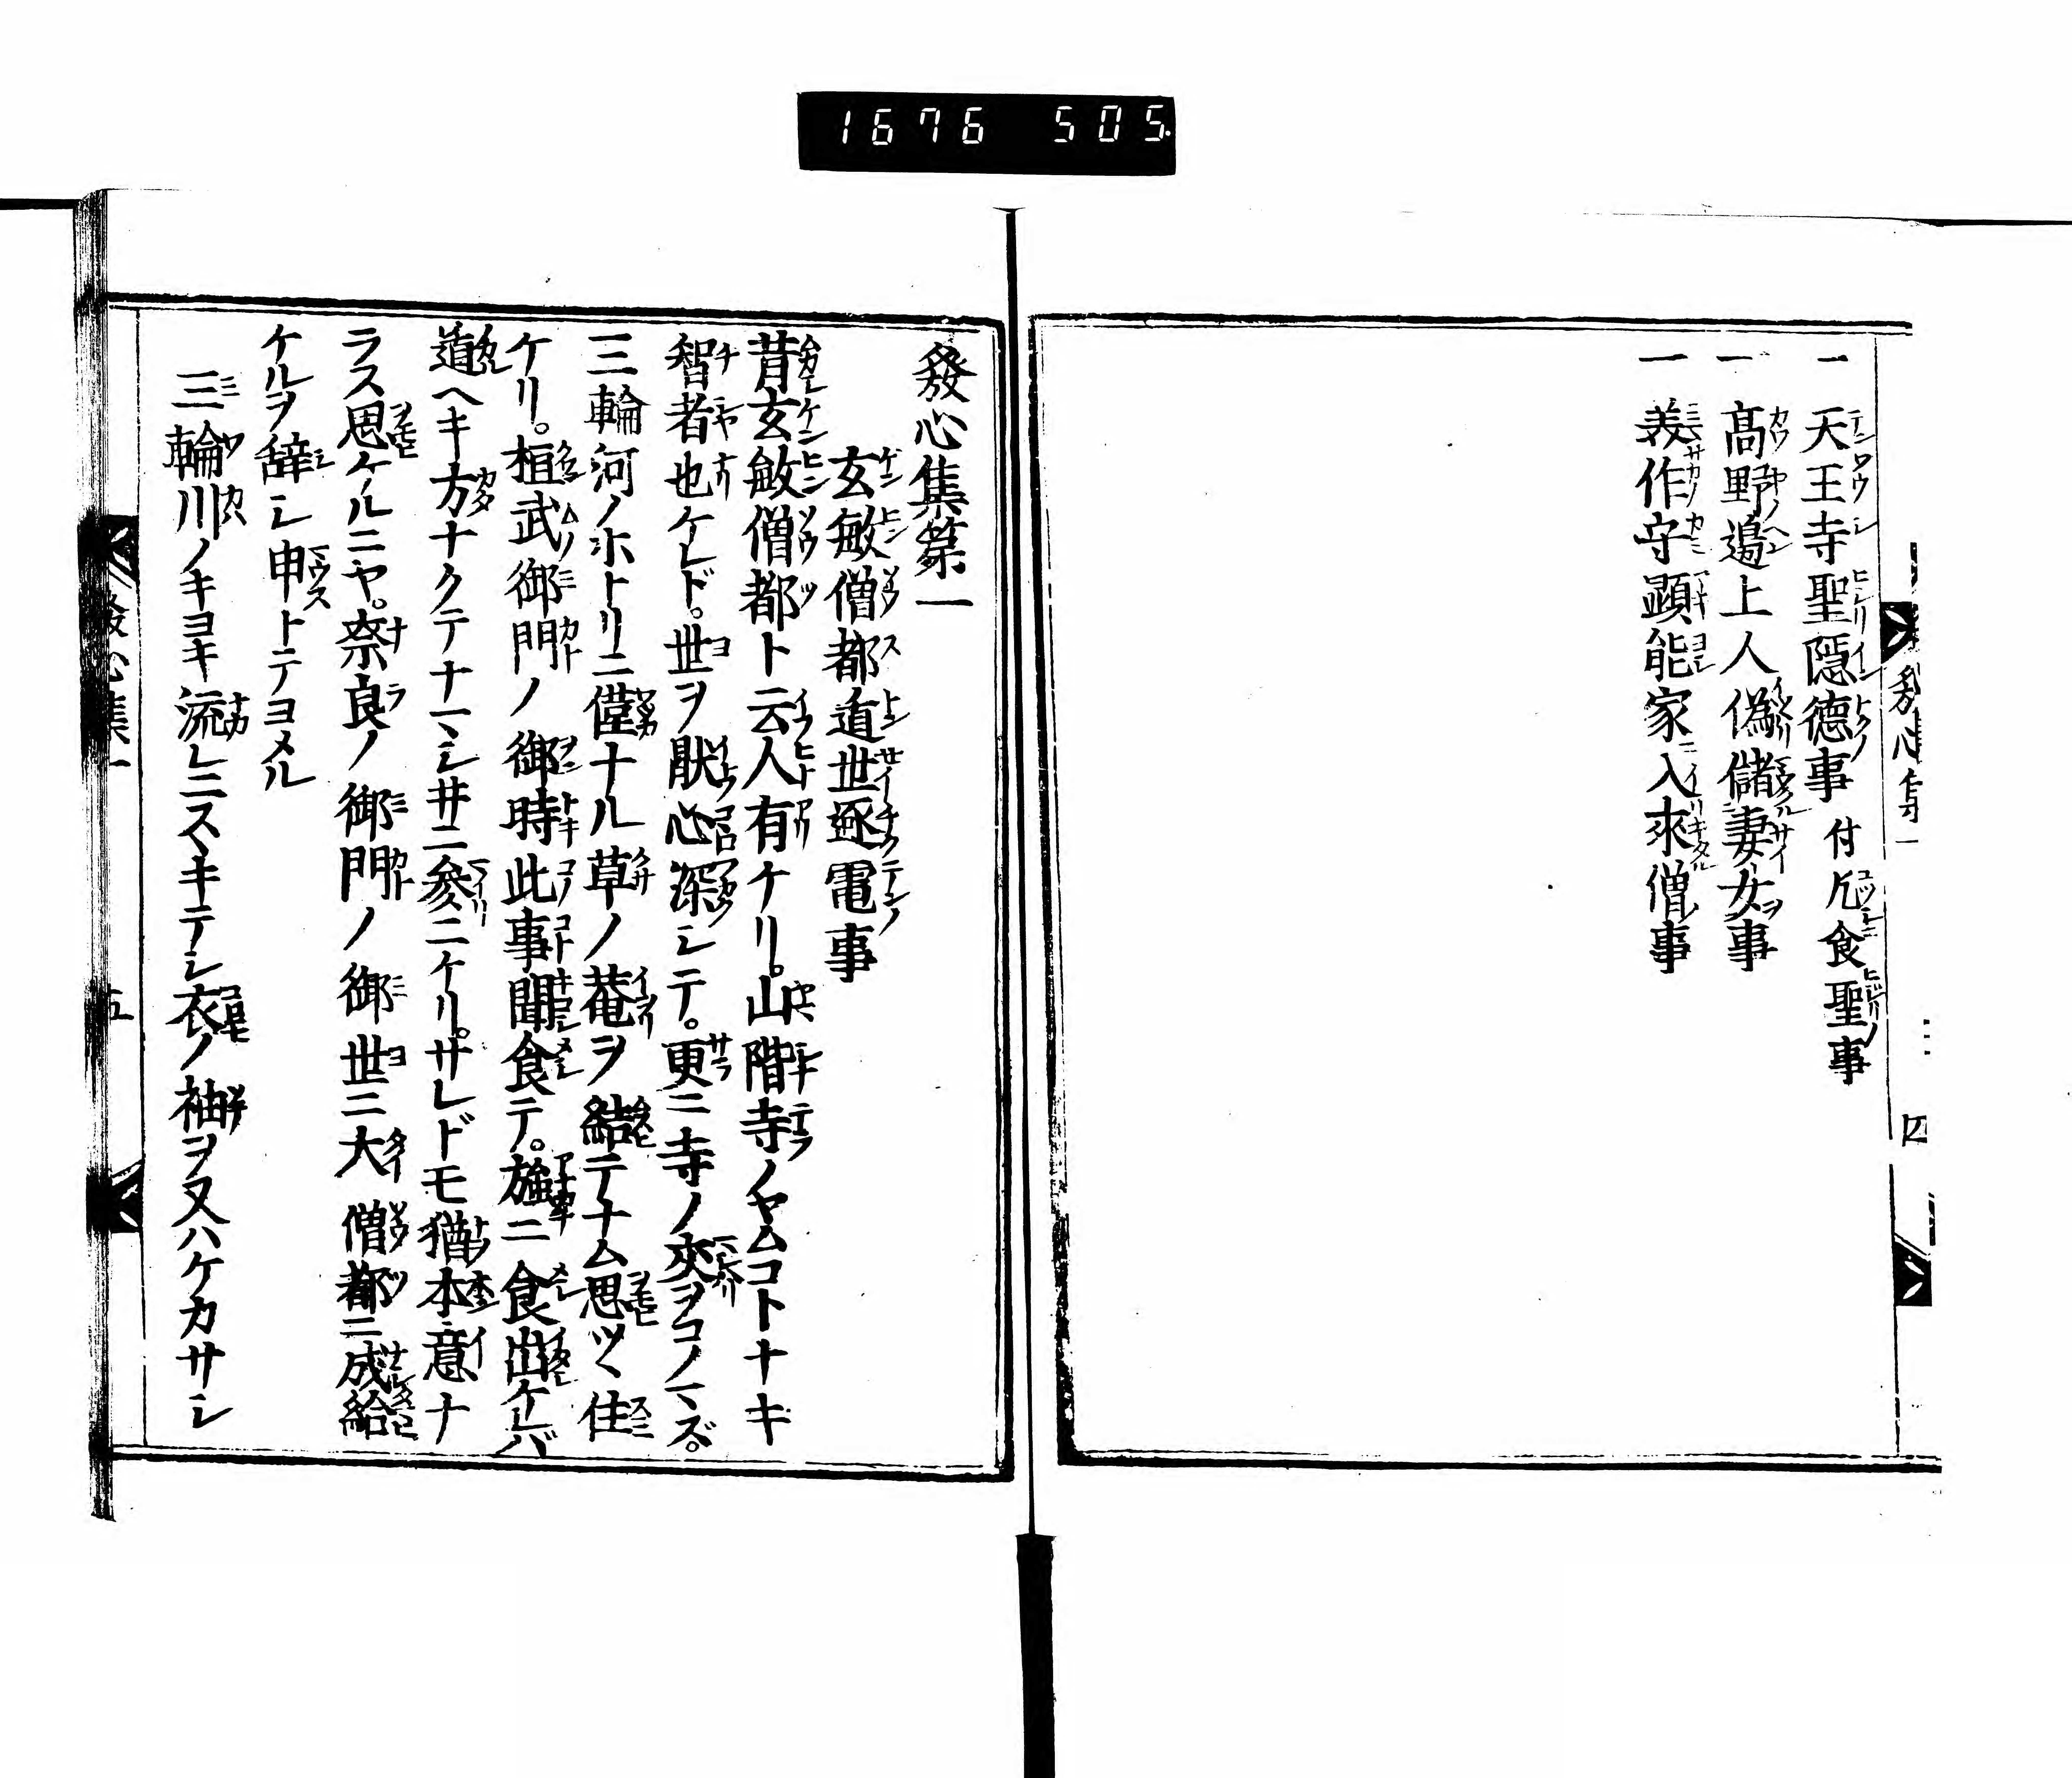 1676 505.
一 天王寺聖隠德事 付乞食聖事
一 髙野邉上人偽儲妻女事
一 美作守顕能家入來僧事
發心集第一
玄敏僧都遁世逐電事
昔玄敏僧都ト云人有ケリ。山階寺ノヤムコトナキ
智者也ケレド。世ヲ猒心深シテ。更ニ寺ノ交ヲコノマズ。
三輪河ノホトリニ僅ナル草ノ菴ヲ結テナム思ツヽ住
ケリ。桓武御門ノ御時此事聞食テ。強ニ食出ケレバ
遁ヘキ方ナクテナマシヰニ參ニケリ。サレドモ猶本意ナ
ラス思ケルニヤ。奈良ノ御門ノ御世ニ大僧都ニ成給
ケルヲ辞シ申トテヨメル
三輪川ノキヨキ流レニスヽキテシ衣ノ袖ヲ又ハケカサシ
發心集一
五